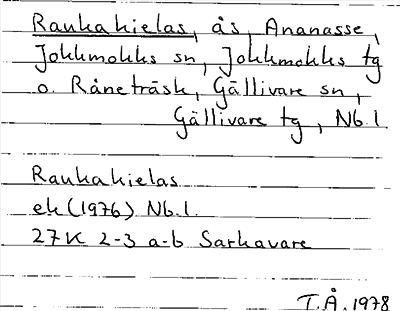 Raukakielas, ås, Ananasse,
Jokkmokks sn, Jokkmokks tg
o. Råneträsk, Gällivare sn,
Gällivare tg, Nb.l.
Raukakielas
ek (1976) Nb.l.
27K 2-3 a-b Sarkavare
T.Å. 1978